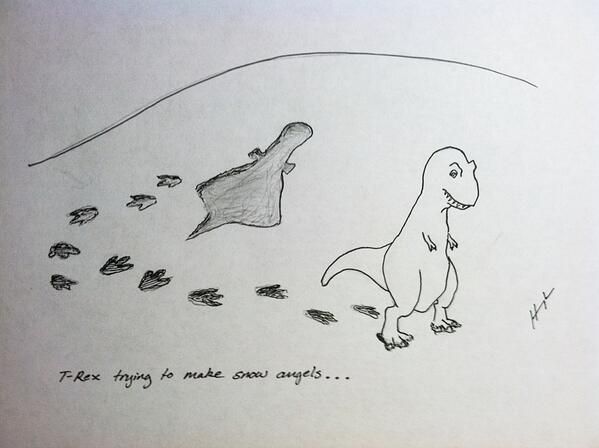 T-Rex trying to make snow angels...